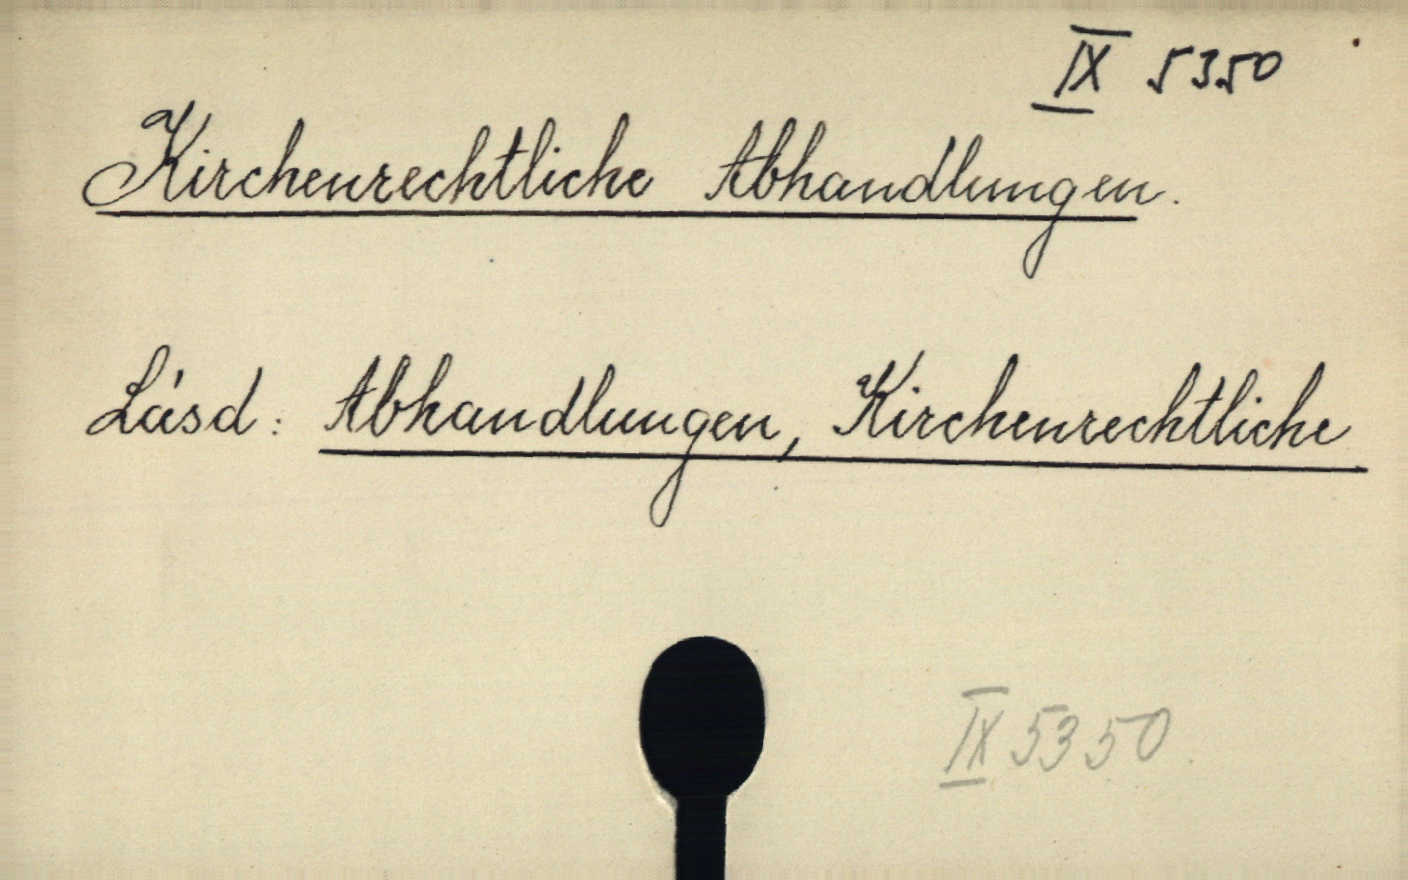 IX 5350
Kirchenrechtliche Abhandlungen.
Lásd: Abhandlungen, Kirchenrechtliche
IX 5350